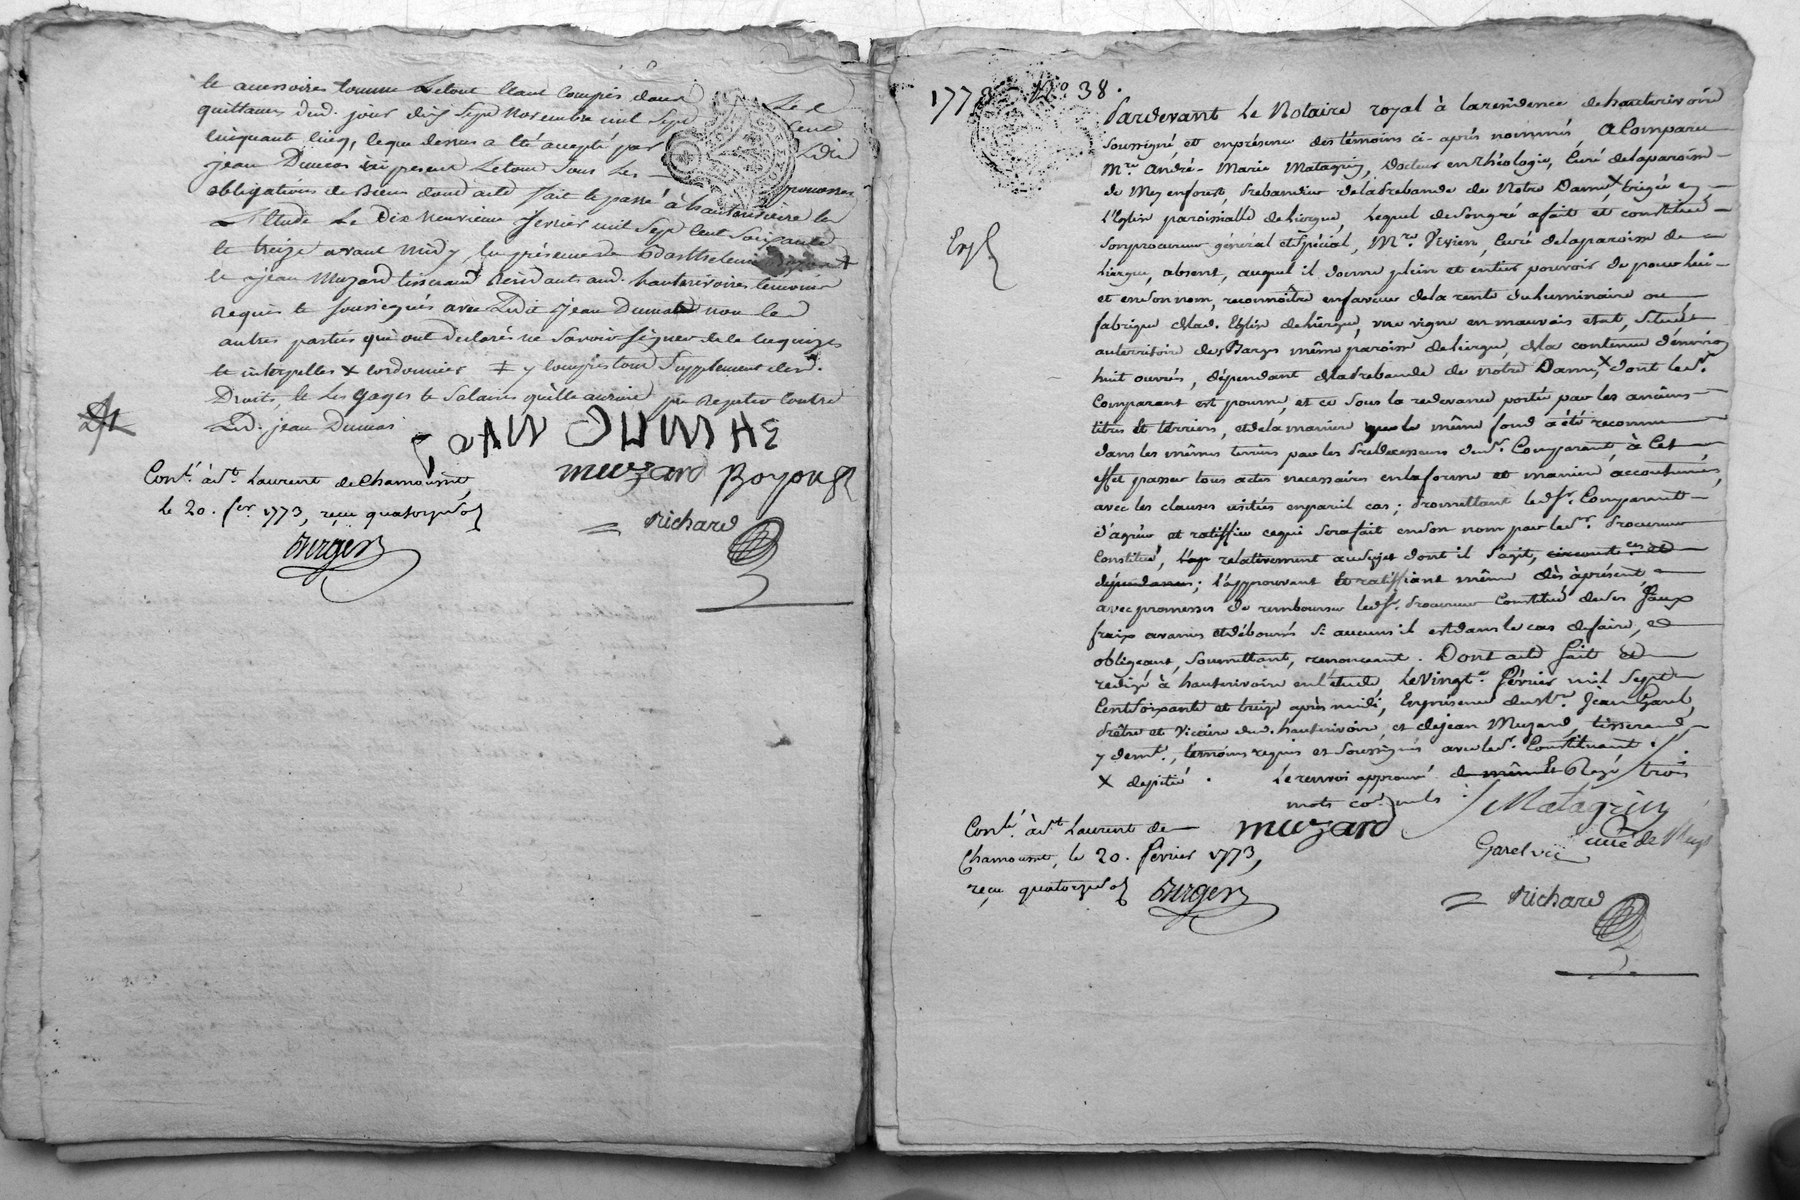 le accessoires comme Letout Etant Compris dans
quittances dud. jour dix Sept Novembre mil Sept
Cinquant Cinq, leque dessus a été accepté par
jean Dumas Letout Sous Les
obligations de Biens dont acte fait le passé à hauterivoire En
L'Etude Le Dix Neuvieme fevrier mil Sept Cent Soixante
le treize avant midy, En présence de Barthelemi
le jean Muzard tisserand Residants aud. hauterivoire temoins
Requis le soussignés avec Led. jean Dumas non les
autres parties qui ont declarés ne Savoir Signer de le enquises
le interpelles + cordonnier ‡ y Compris tout Supplement de
Droits, le Les Gages le Salaires quelle auroit pu Repeter Contre
Led. jean Dumas
JEAN DUMAS
muzard Boyon
Conlé. à St. Laurent de Chamousset,
le 20. fer. 1773, reçu quatorze sols
Berger
Richard
1773 No. 38.
Pardevant Le Notaire royal à la residence de hauterivoire
Soussigné et en présence des témoins ci-après nommés A Comparu
Mre. André-Marie Matagrin, Docteur en théologie, Curé de la paroisse
de Meys en forest, Prebandier de la Prebande de Notre Dame x érigée en
l'Eglise paroissialle de hiergue, Lequel de Son gré a fait et constitué
Son procureur général et Spécial, Mre. Vivien, Curé de la paroisse de
hiergue, absent, auquel il donne plein et entier pouvoir de pour lui
et en son nom, reconnoître en faveur de la rente du Luminaire ou
fabrique de lad. Eglise de hiergue, une vigne en mauvais etat, Située
au territoire des Bargs même paroisse de hiergue, de la contenue d'environ
huit ouvrés, dépendant de la Prebande de Notre Dame, x dont led. Sr.
Comparant est pourvu, et ce Sous la redevance portée par les anciens
titres et terriers, et de la maniere que le même fond a été reconnu
dans les mêmes terriers par les Prédécesseurs dud. Sr. Comparant, à Cet
effet passer tous actes necessaires en la forme et maniere accoutumées,
avec les clauses usitées en pareil cas; Promettant led. Sr. Comparant
d'agréer et ratiffier ce qui Sera fait en Son nom par led. Sr. Procureur
Constitué, relativement au Sujet dont il S'agit, circonstces. et
dépendances; l'approuvant et ratiffiant même dès àprésent,
avec promesses de rembourser led. Sr. Procureur Constitué de Ses faux
fraix avances et débourés Si aucuns il est dans le cas de faire, et
obligeant, Soumettant, renonceant. Dont acte fait et
redigé à hauterivoire en l'étude Le Vingte. Février mil Sept
Cent Soixante et treize après midi, En présence de Mre. Jean Garel,
Prêtre et Vicaire dud. hauterivoire, et de jean Muzard, tisserand
y demt., témoins requis et Soussignés avec led. Sr. Constituant.
x de pitié. Le renvoi approuvé de même Et Rayé trois
mots come. nuls
Exp
Matagrin
curé de Meys
muzard
Garel vic
Conlé. à St. Laurent de
Chamousset, le 20. février 1773,
reçu quatorze sols
Berger
Richard